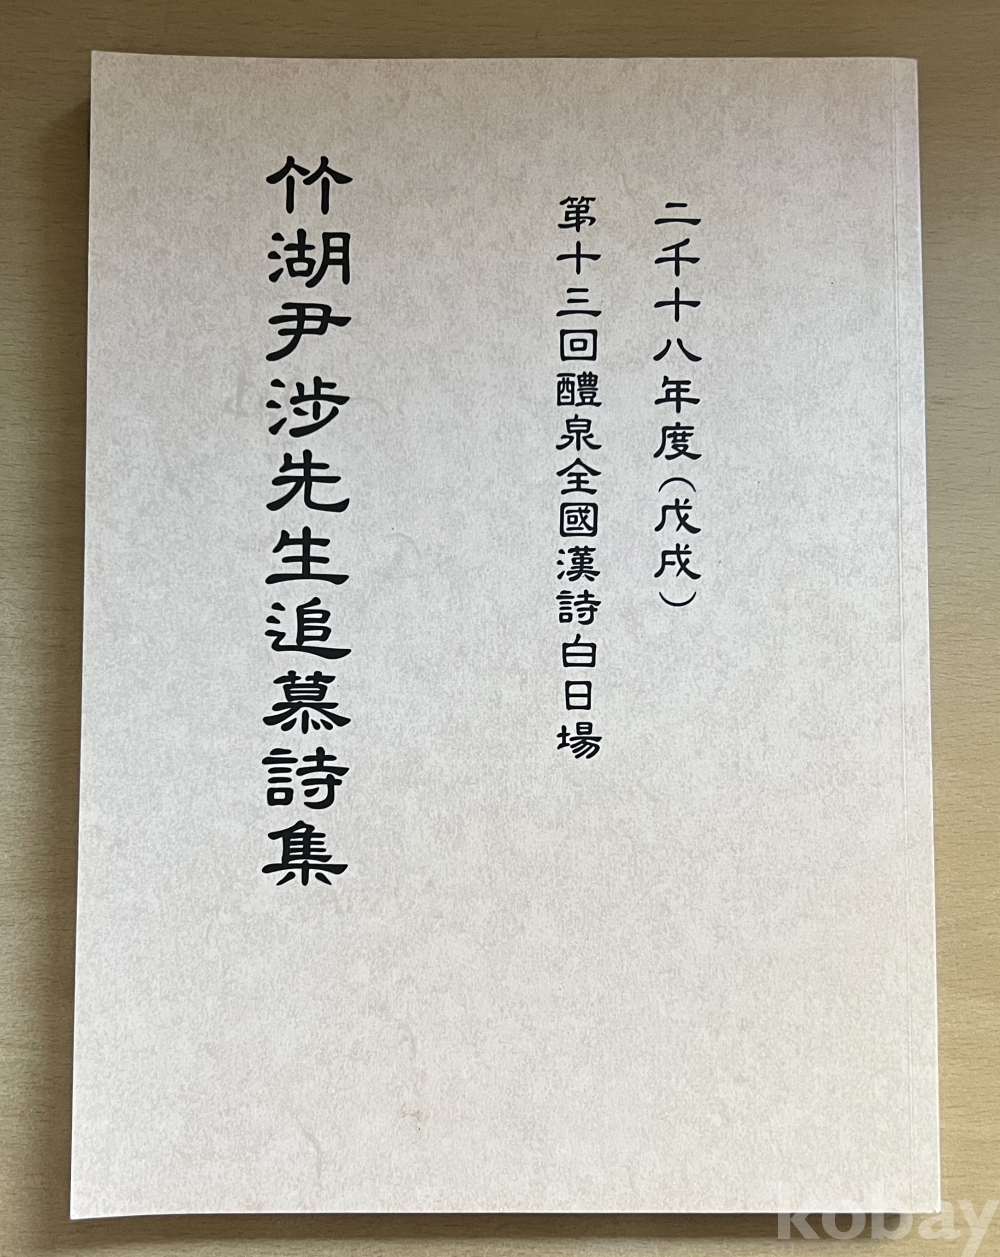 二千十八年度(戊戌)
第十三回醴泉全國漢詩白日場
竹湖尹涉先生追慕詩集
kobay